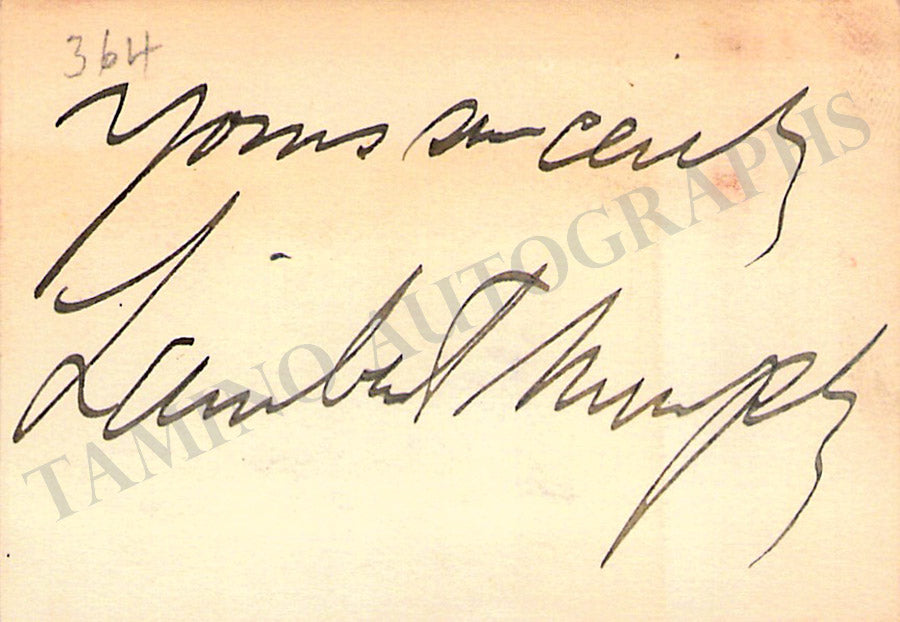 364
Yours sincerely
Lambert Murphy
TAMINO AUTOGRAPHS